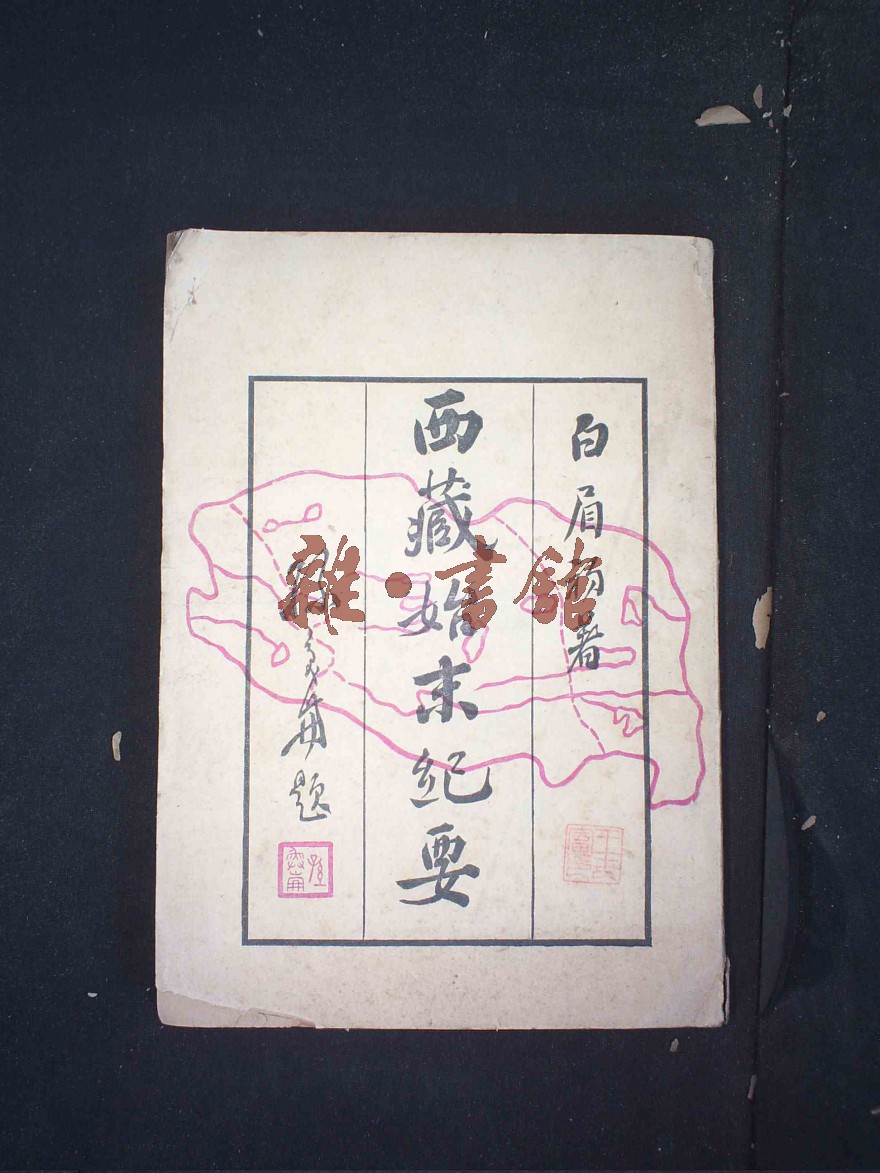 白眉初著
西藏始末紀要
題
雜·書館